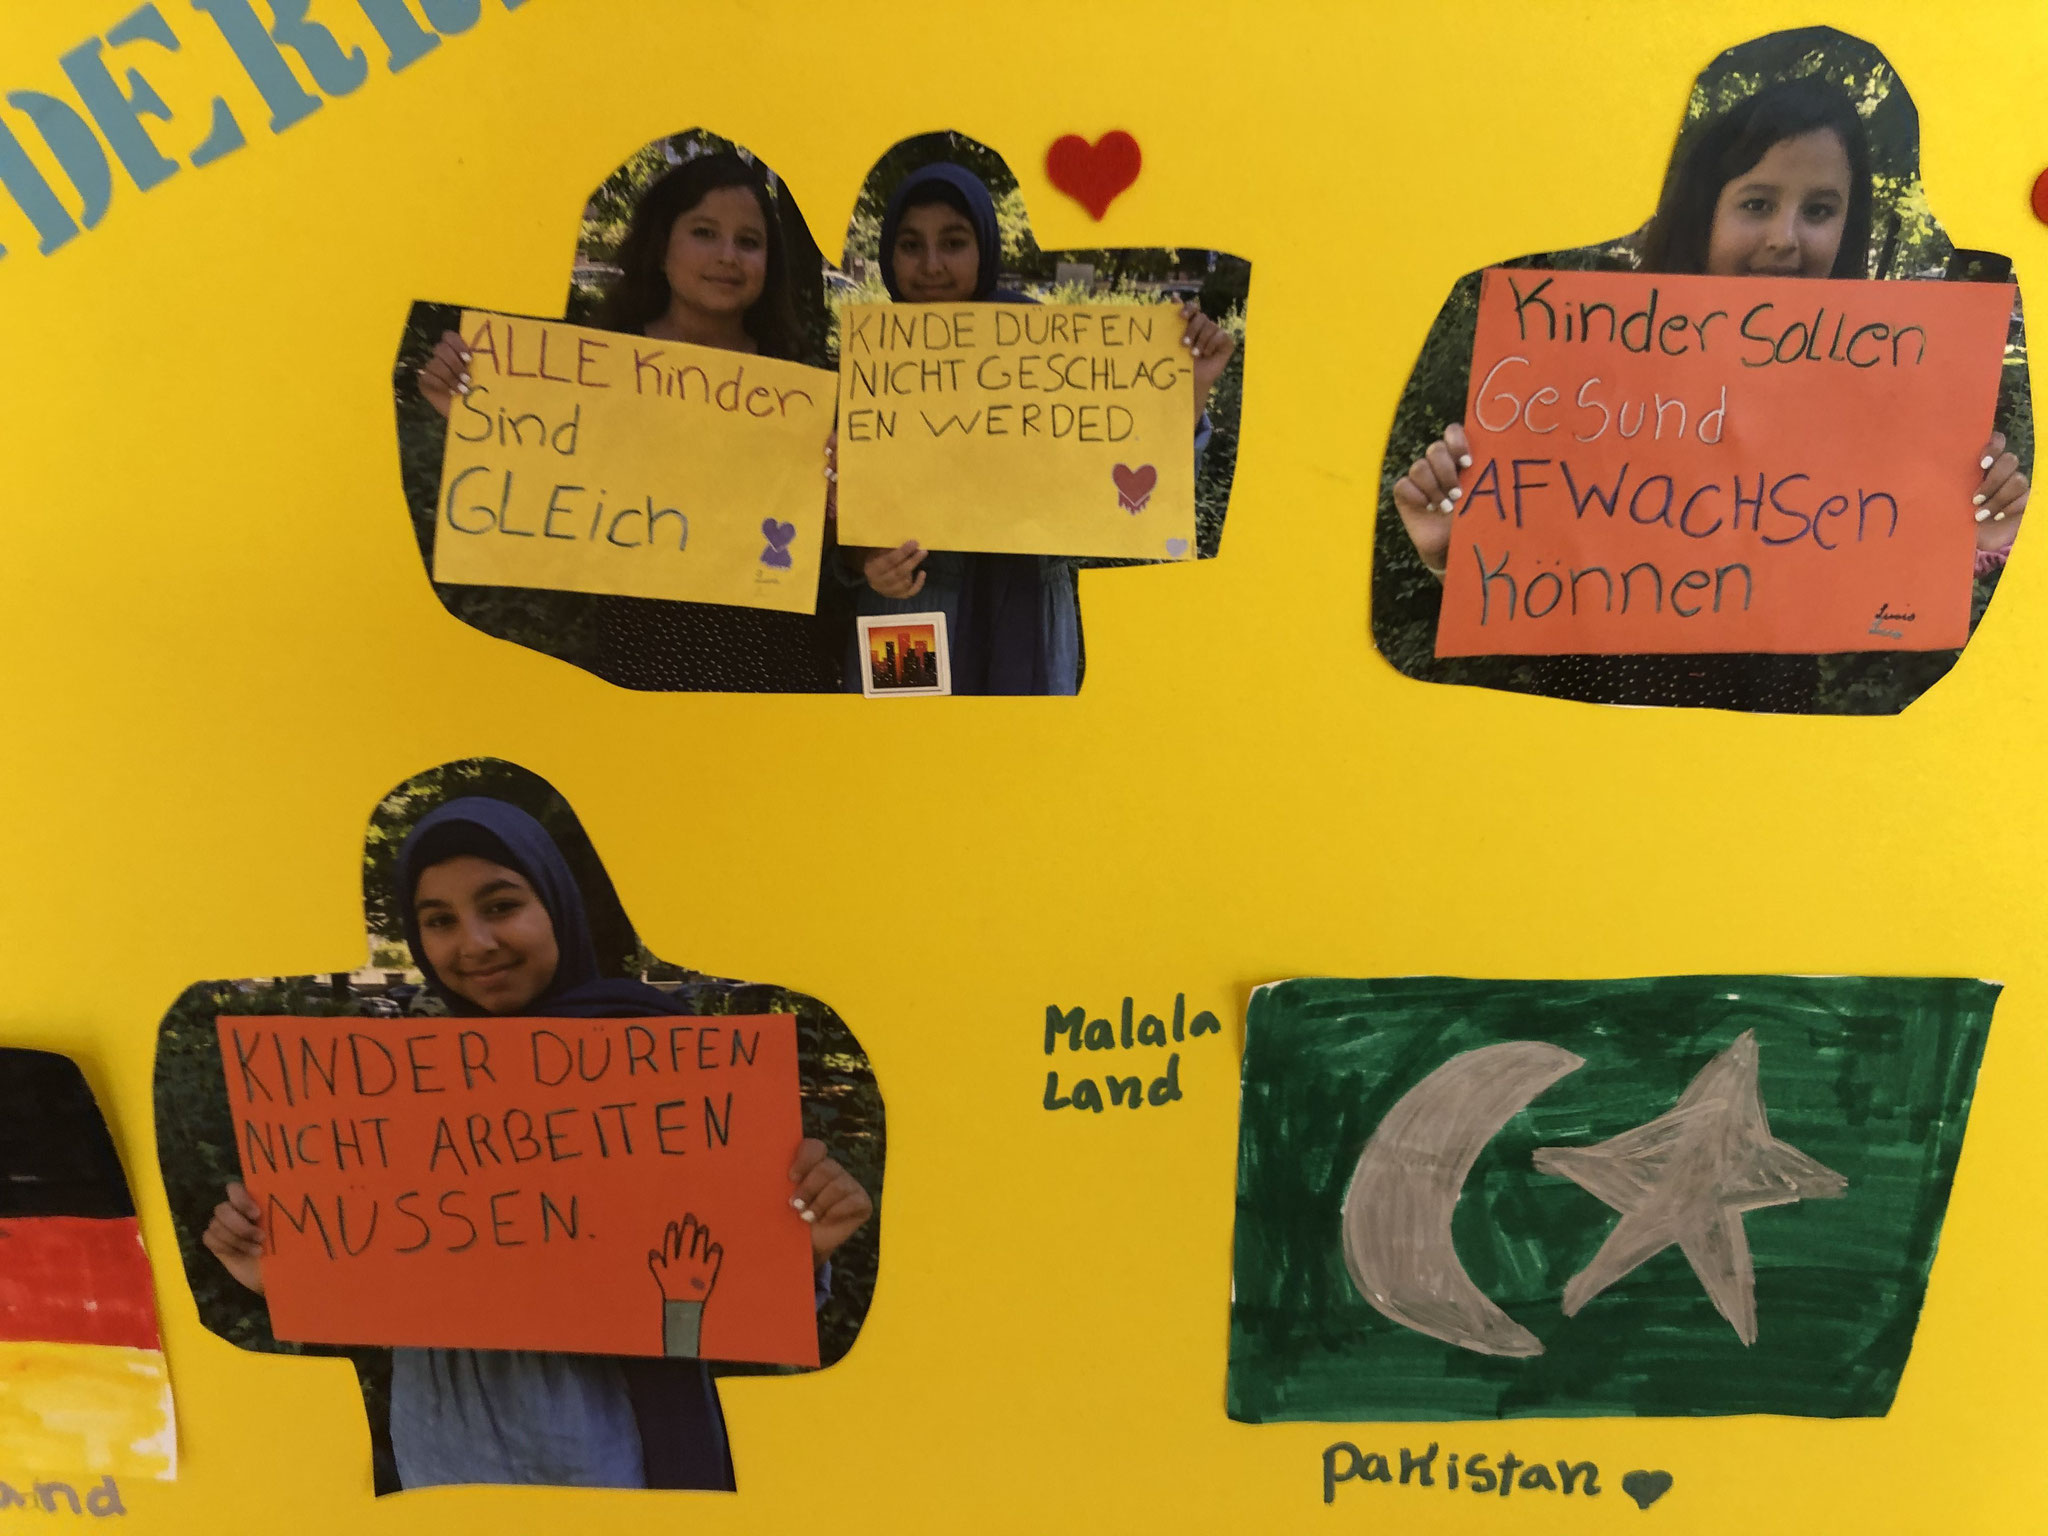 DERR
ALLE Kinder
Sind
GLEich
KINDE DÜRFEN
NICHT GESCHLAG-
EN WERDED.
Kinder Sollen
Gesund
AFWacHSen
Können
KINDER DÜRFEN
NICHT ARBEITEN
MÜSSEN.
Malala
Land
and
Pakistan